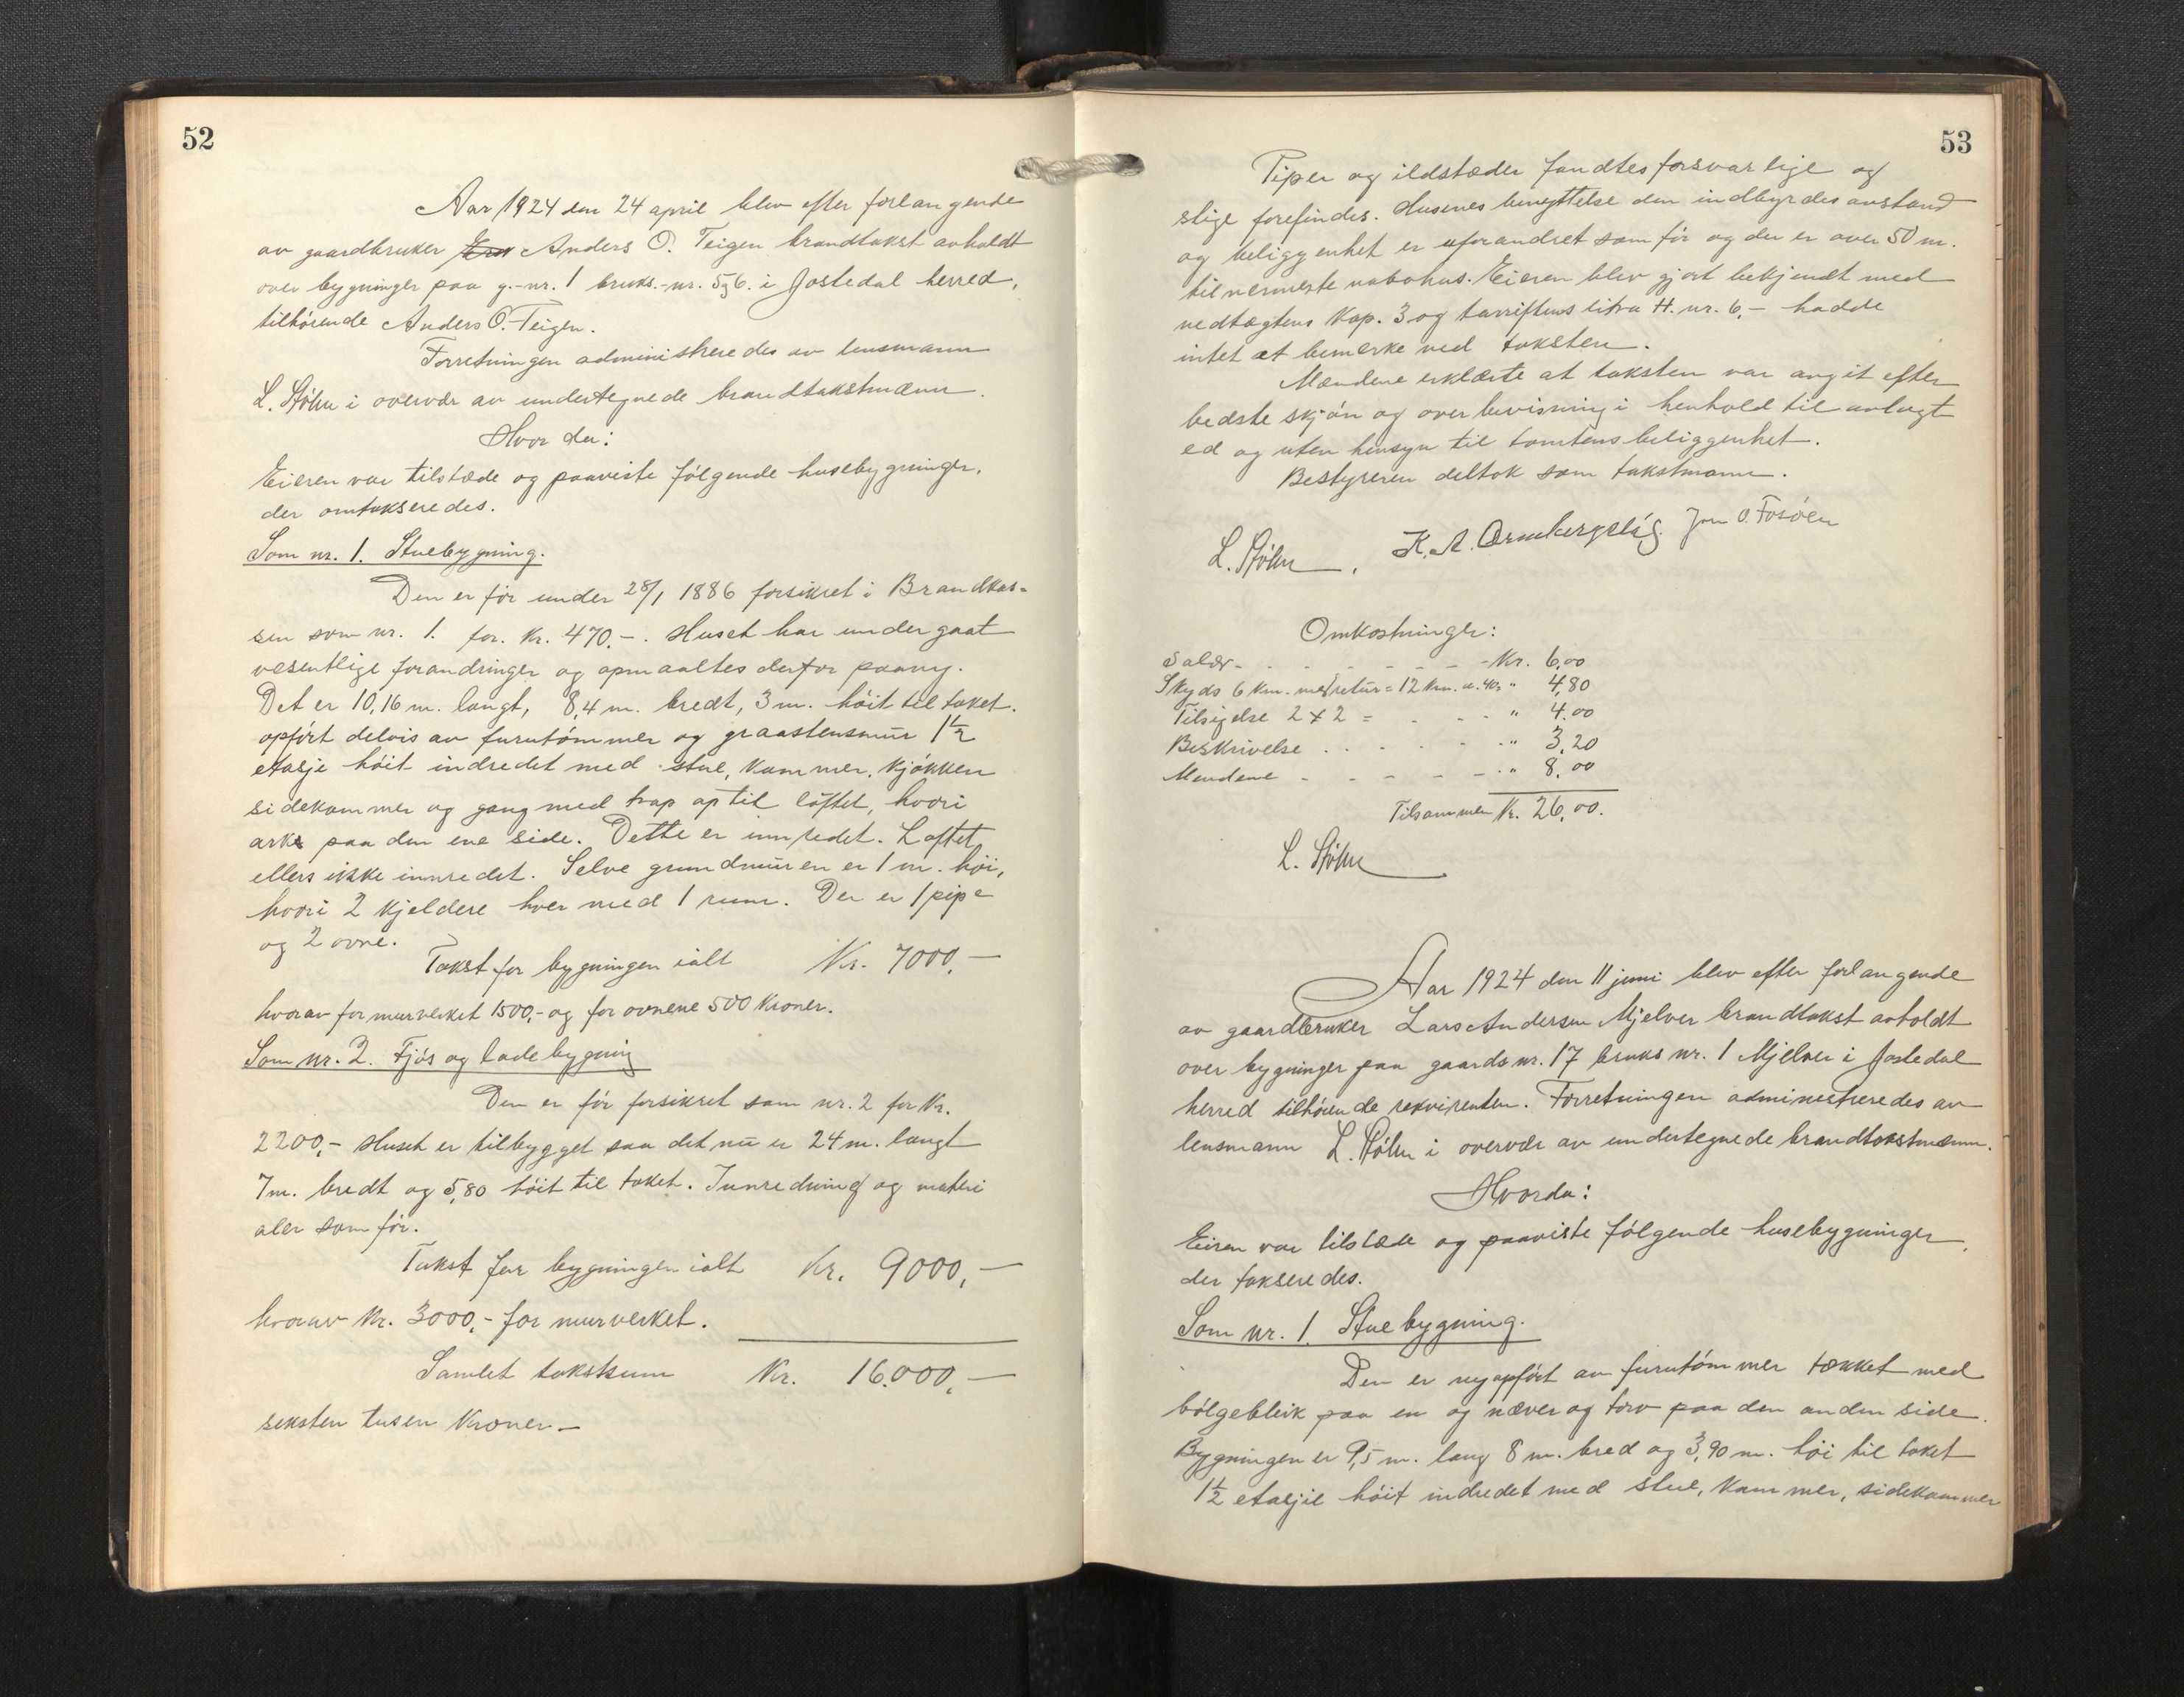 52
Aar 1924 den 24 april blev efter forlangende
av gaardbruker Anders O. Teigen brandtakst avholdt
over bygninger paa g.-nr. 1 bruks.-nr. 5 og 6. i Jostedal herred,
tilhørende Anders O. Teigen.
Forretningen administreredes av lensmann
L. Stølen i overvær av undertegnede brandtakstmænn.
Hvor da:
Eieren var tilstæde og paaviste følgende husebygninger,
der omtakseredes.
Som nr. 1. Stuebygning.
Den er før under 28/1 1886 forsikret i Brandkas-
sen som nr. 1. for. Kr. 470.-. Huset har undergaat
væsentlige forandringer og opmaaltes derfor paany.
Det er 10,16 m. langt, 8,4 m. bredt, 3 m. høit til taket.
opført delvis av furutømmer og graastensmur 1 1/2
etasje høit indredet med stue, kammer, kjøkken
sidekammer og gang med trap op til loftet, hvori
ark paa den ene side. Dette er innredet. Loftet
ellers ikke innredet. Selve grundmuren er 1 m. høi,
hvori 2 kjeldere hver med 1 rum. Der er 1 pipe
og 2 ovne.
Takst for bygningen ialt Kr. 7000,-
hvorav for murverket 1500,- og for ovnene 500 Kroner.
Som nr. 2. Fjøs og ladebygning
Den er før forsikret som nr. 2 for Kr.
2200,- Huset er tilbygget saa det nu er 24 m. langt
7 m. bredt og 5,80 høit til taket. Innredning og materi
aler som før.
Takst for bygningen ialt Kr. 9000,-
hvorav Kr. 3000,- for murverket.
Samlet takstsum Kr. 16.000,-
seksten tusen Kroner.-
53
Piper og ildstæder fandtes forsvarlige og
slige forefindes. Husenes benyttelse den indbyrdes avstand
og beliggenhet er uforandret som før og der er over 50 m.
til nærmeste nabohus. Eieren blev gjort bekjendt med
vedtægtens Kap. 3 og tarriffens litra H. nr. 6,- hadde
intet at bemærke ved taksten.
Mændene erklærte at taksten var angit efter
bedste skjøn og overbevisning i henhold til avlagt
ed og uten hensyn til tomtens beliggenhet.
Bestyreren deltok som takstmann.
L. Stølen. K. A. Ormbergstøl. Jon O. Fosøen
Omkostninger:
Salær - - - - - - - Kr. 6,00
Skyds 6 km. med retur = 12 km. a. 40, " 4,80
Tilsigelse 2 x 2 = - - - " 4.00
Beskrivelse . . . . - " 3,20
Mændene - - - - - " 8,00
Tilsammen Kr. 26,00.
L. Stølen
Aar 1924 den 11 juni blev efter forlangende
av gaardbruker Lars Andersen Mjelver brandtakst avholdt
over bygninger paa gaards nr. 17 bruks nr. 1 Mjelver i Jostedal
herred tilhørende rekvirenten. Forretningen administreredes av
lensmann L. Stølen i overvær av undertegnede brandtakstmænn.
Hvorda:
Eieren var tilstæde og paaviste følgende husebygninger,
der takseredes.
Som nr. 1. Stuebygning.
Den er nyopført av furutømmer tækket med
bølgeblik paa en og næver og torv paa den anden side.
Bygningen er 9,5 m. lang 8 m. bred og 3,90 m. høi til taket
1 1/2 etasjie høit indredet med stue, kammer, sidekammer